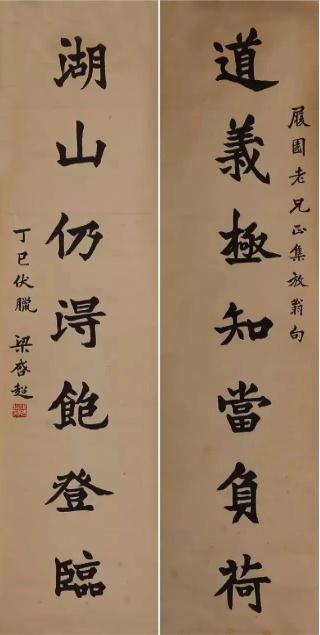 履園老兄正集放翁句
道義極知當負荷
湖山仍得飽登臨
丁巳伏臘 梁啓超